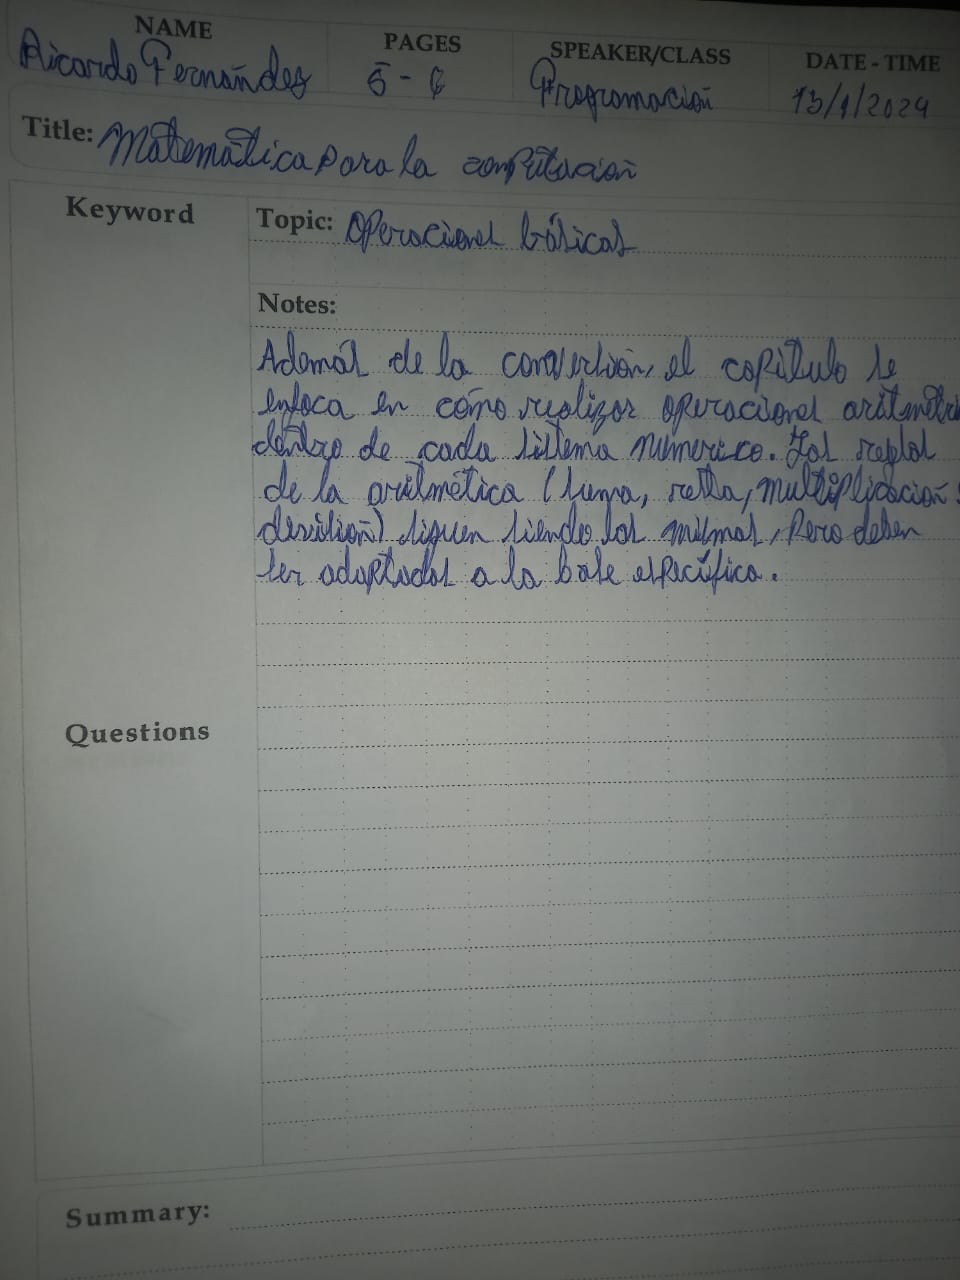 NAME PAGES SPEAKER/CLASS DATE - TIME
Ricardo Fernández 5 - 6 Programación 13/1/2024
Title: Matemática para la computación
Keyword
Topic: Operaciones básicas
Notes:
Además de la conversión, el capítulo se
enfoca en cómo realizar operaciones aritmétic
dentro de cada sistema numerico. Las reglas
de la aritmética (suma, resta, multiplicación
devisión) siguen siendo las mismas, Pero deben
ser adaptadas a la base específica.
Questions
Summary: